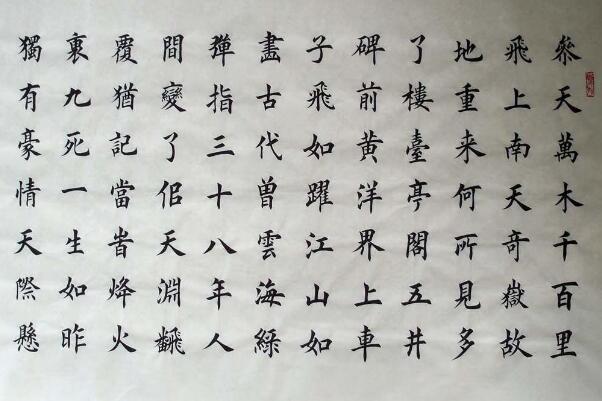 叅天萬木千百里
飛上南天奇嶽故
地重来何所見多
了樓臺亭閣五井
碑前黄洋界上車
子飛如躍江山如
畫古代曽雲海緑
彈指三十八年人
間變了佀天淵飜
覆猶記當旹烽火
裏九死一生如昨
獨有豪情天際懸